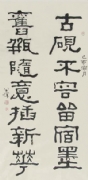 古硯不容留宿墨
舊瓶隨意插新華